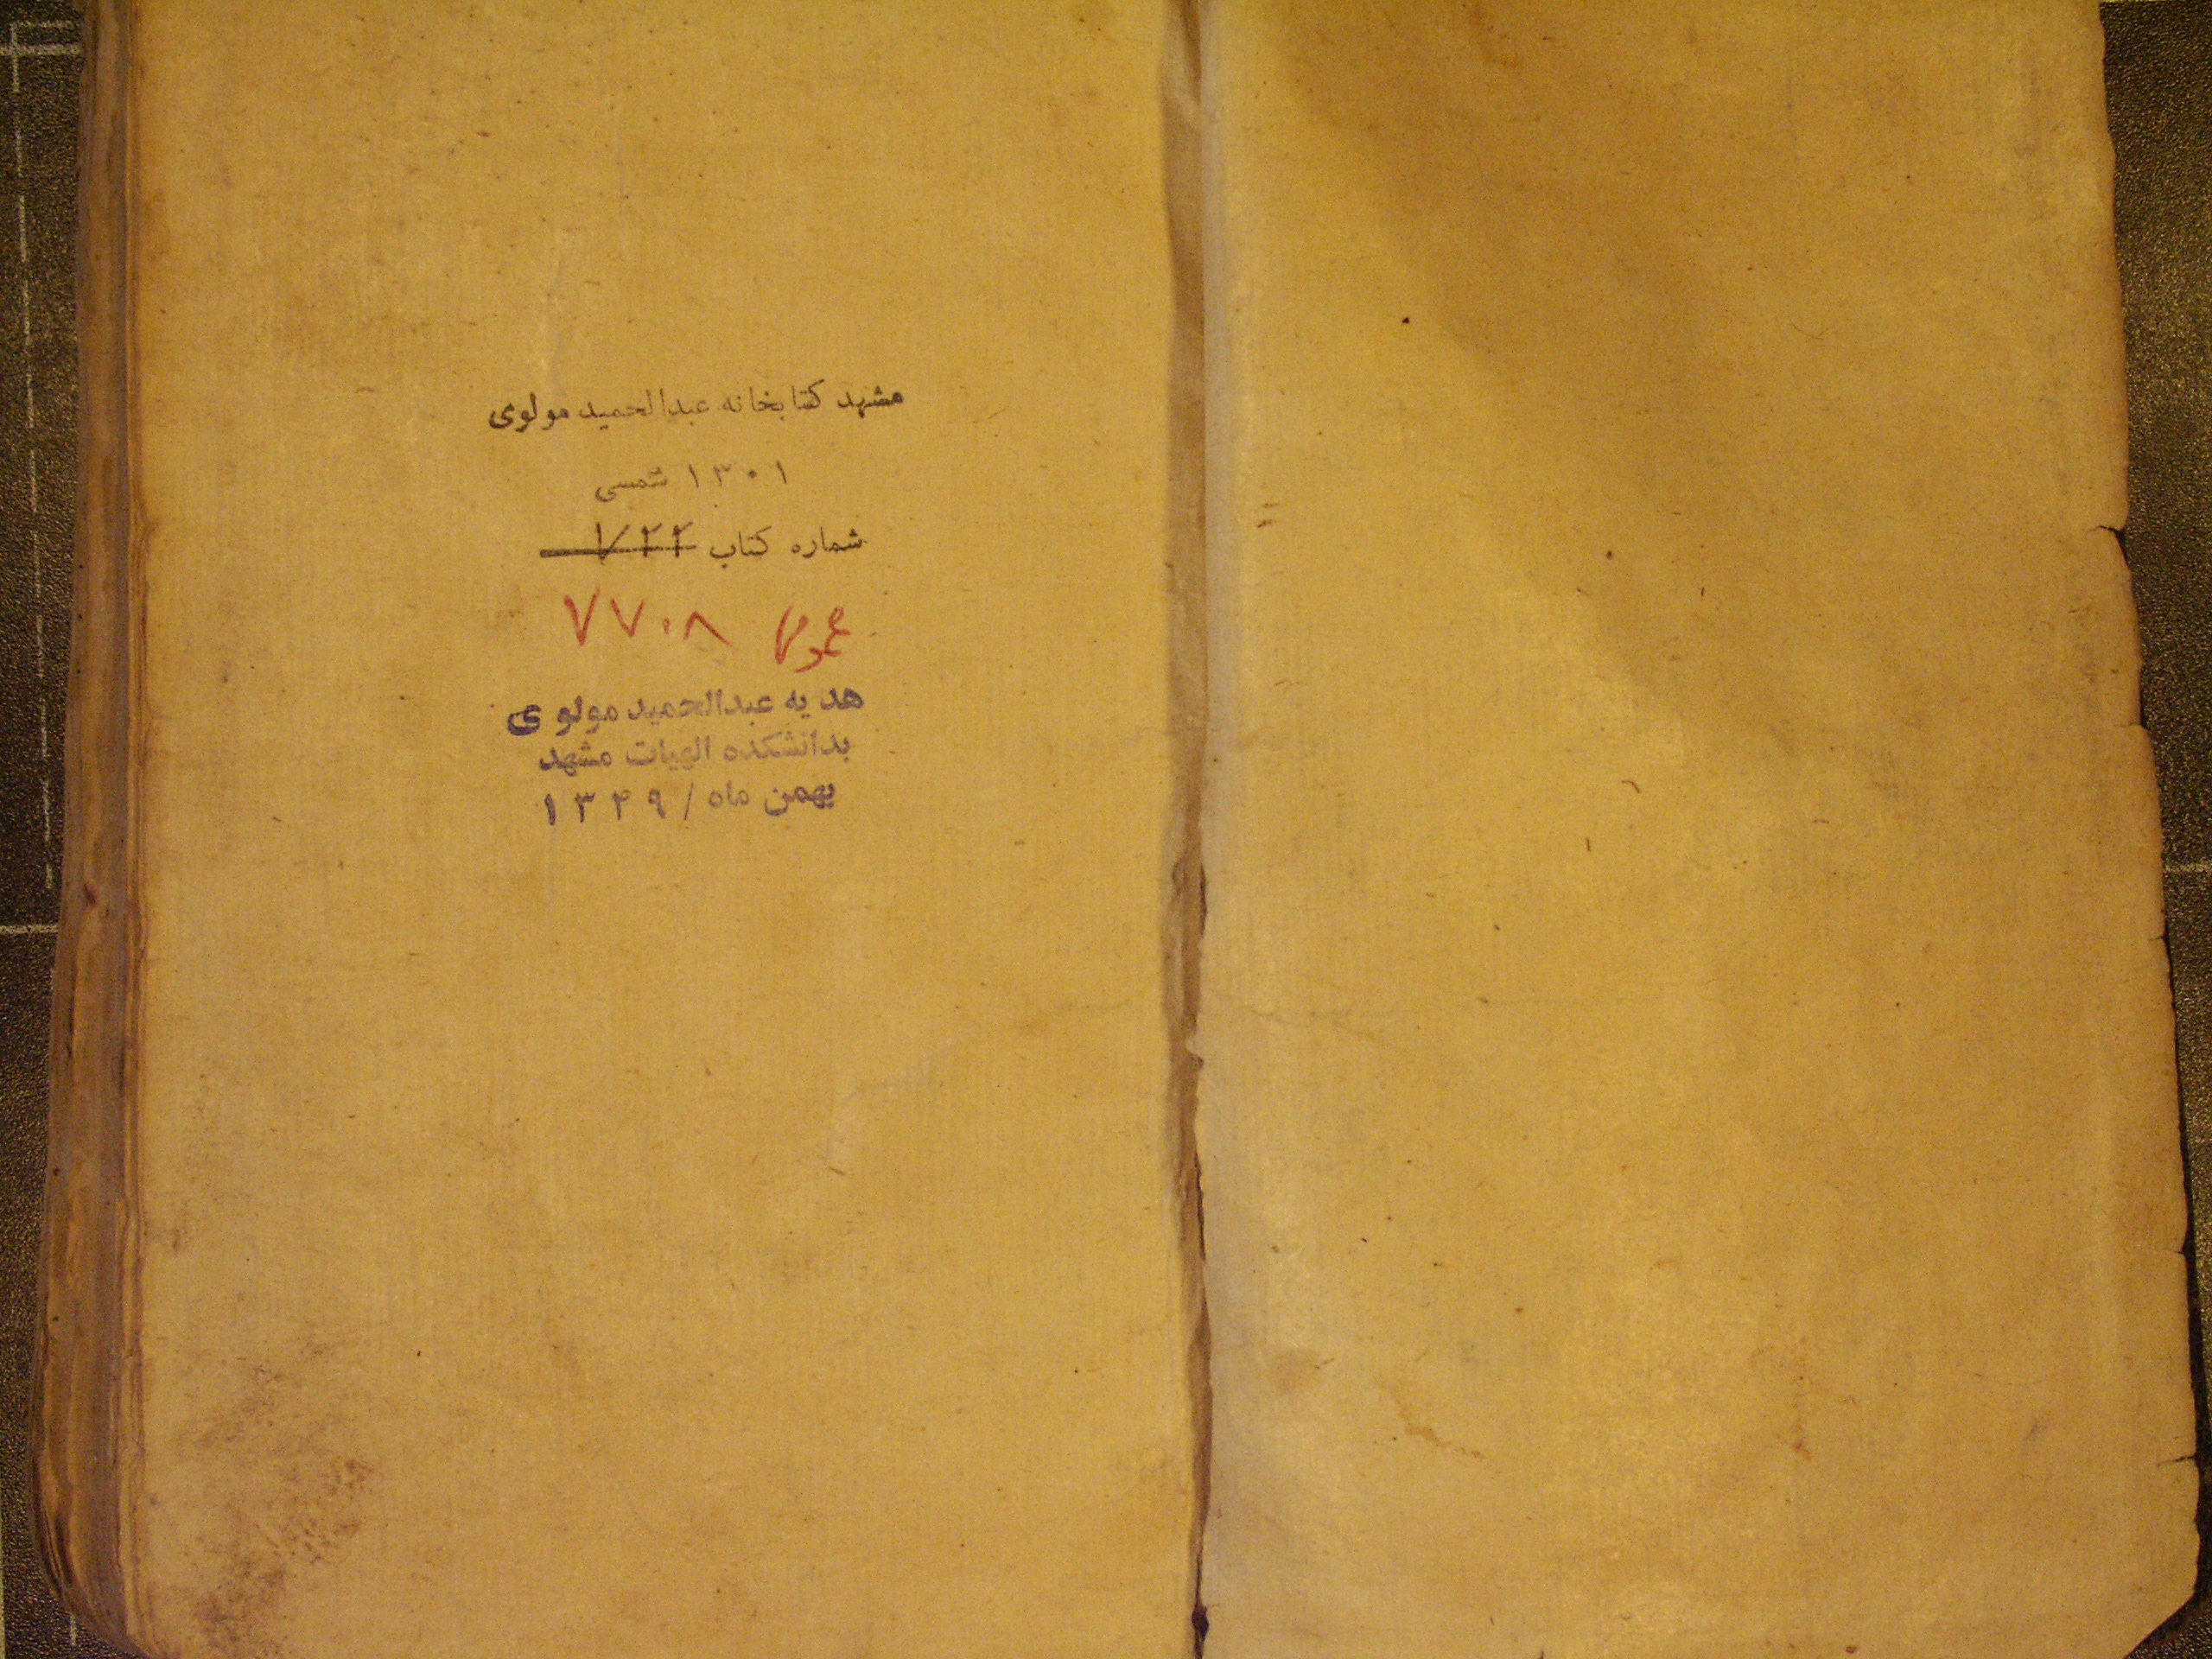 مشهد کتابخانه عبدالحمید مولوی
۱۳۰۱ شمسی
شماره کتاب ۷۲۲
عمومی ۷۷۰۸
هدیه عبدالحمید مولوی
بدانشکده الهیات مشهد
بهمن ماه / ۱۳۴۹